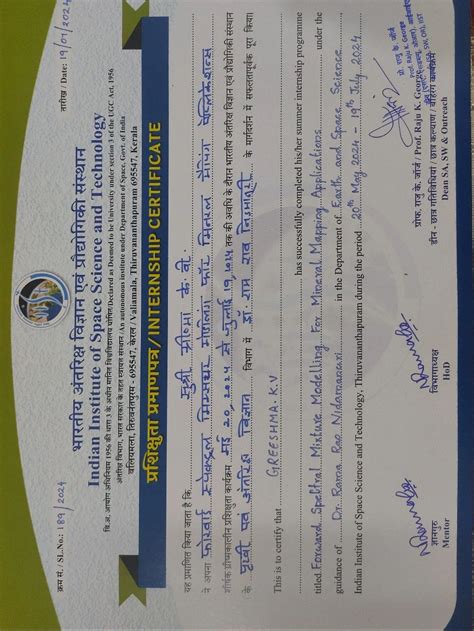 क्रम सं. / SL.No.: 189/2024
तारीख / Date: 19/07/2024
भारतीय अंतरिक्ष विज्ञान एवं प्रौद्योगिकी संस्थान
Indian Institute of Space Science and Technology
वि.अ. आयोग अधिनियम 1956 की धारा 3 के अधीन मानित विश्वविद्यालय घोषित/Declared as Deemed to be University under section 3 of the UGC Act, 1956
अंतरिक्ष विभाग, भारत सरकार के तहत स्वायत्त संस्थान /An autonomous institute under Department of Space, Govt. of India
वलियमला, तिरुवनंतपुरम - 695547, केरल / Valiamala, Thiruvananthapuram 695547, Kerala
प्रशिक्षुता प्रमाणपत्र/INTERNSHIP CERTIFICATE
यह प्रमाणित किया जाता है कि सुश्री ग्रीष्मा के वी
ने अपना फोरवार्ड स्पेक्ट्रल मिक्सचर मॉडलिंग फॉर मिनरल मैपिंग एप्लिकेशन्स
शीर्षक ग्रीष्मकालीन प्रशिक्षुता कार्यक्रम मई 20, 2024 से जुलाई 19, 2024 तक की अवधि के दौरान भारतीय अंतरिक्ष विज्ञान एवं प्रौद्योगिकी संस्थान
के पृथ्वी एवं अंतरिक्ष विज्ञान विभाग में डॉ. राम राव निडमानूरी के मार्गदर्शन में सफलतापूर्वक पूरा किया।
This is to certify that GREESHMA. K.V has successfully completed his/her summer internship programme
titled Forward Spectral Mixture Modelling For Mineral Mapping Applications under the
guidance of Dr. Rama Rao Nidamanuri in the Department of Earth and Space Science
Indian Institute of Space Science and Technology, Thiruvananthapuram during the period 20th May 2024 - 19th July 2024
ज्ञानगुरु
Mentor
विभागाध्यक्ष
HoD
प्रो. राजु के. जॉर्ज
Prof. Raju K. George
प्रोफ. राजु के. जॉर्ज / Prof. Raju K. George
डीन - छात्र गतिविधियां / छात्र कल्याण / बाहरी कार्यक्रम
Dean SA, SW & Outreach